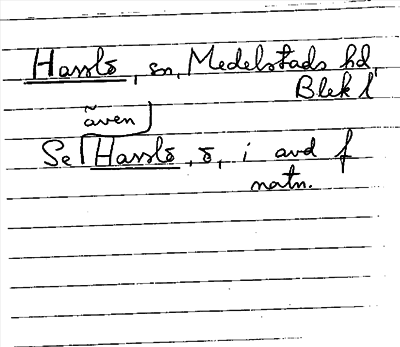 Hasslö, sn, Medelstads hd,
Blek l
även
Se Hasslö, ö, i avd f
natn.